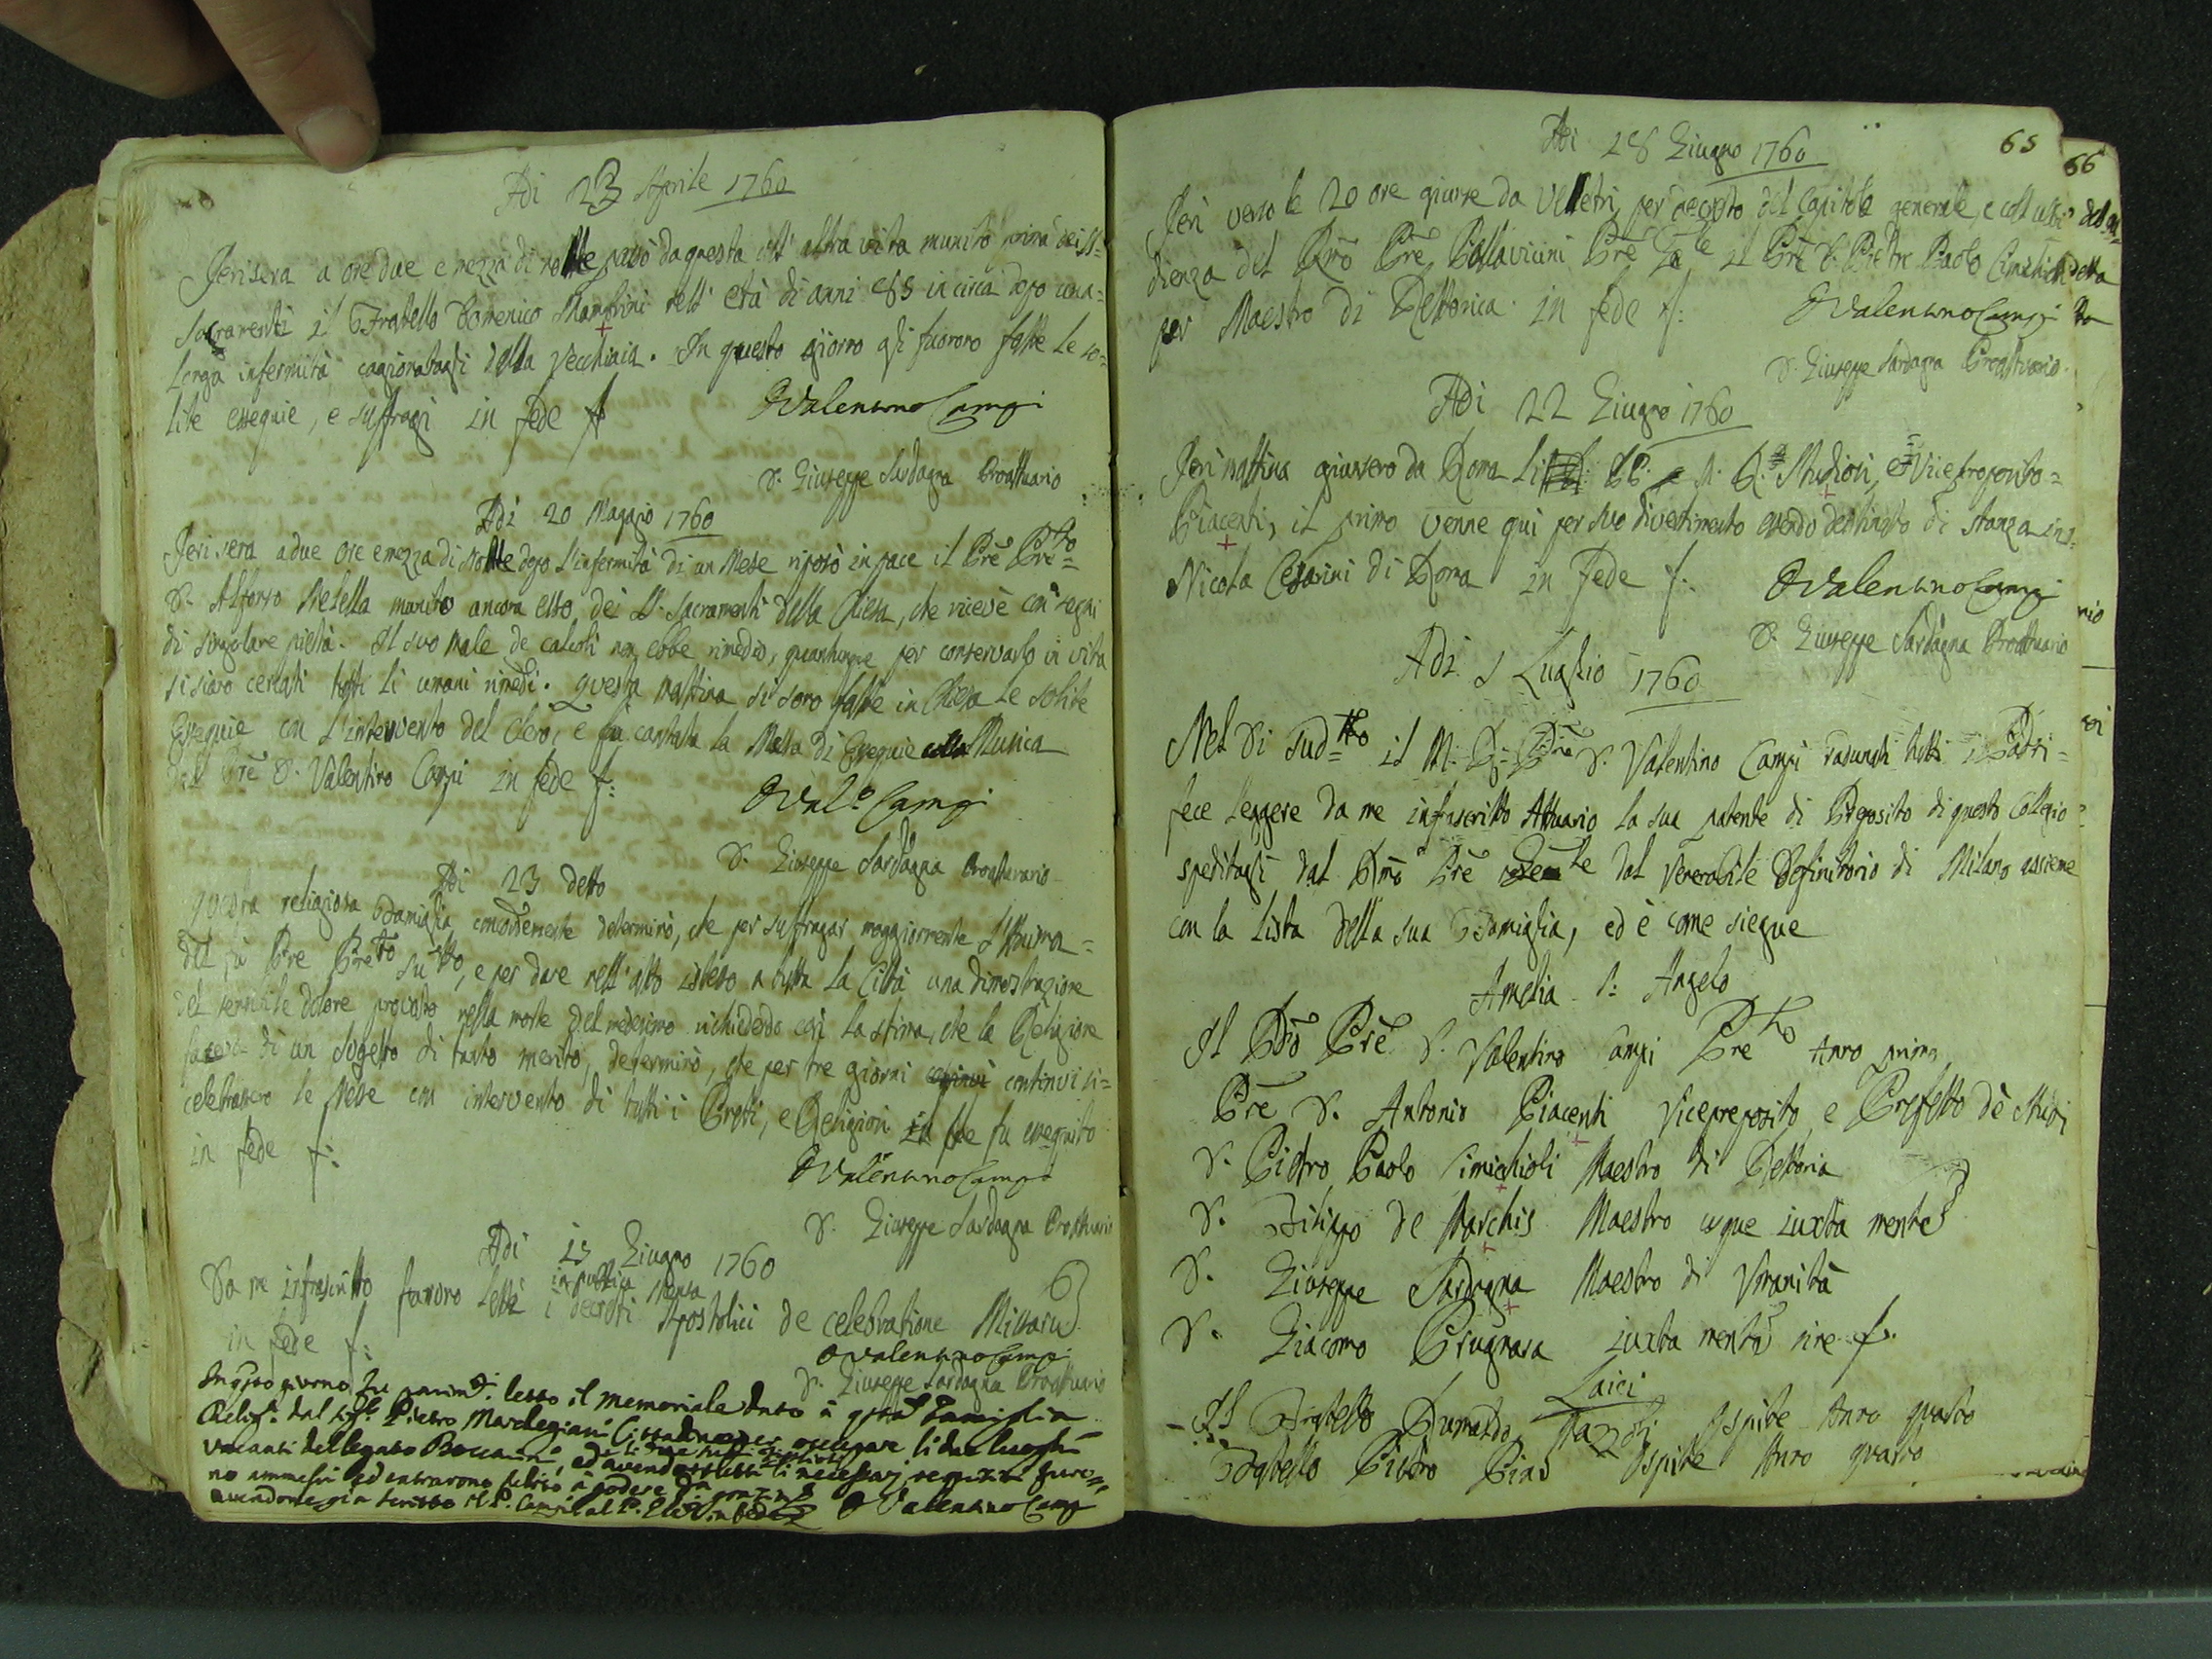 Adi 23 Aprile 1760
Jeri sera a ore due e mezza di notte passò da questa all' altra vita munito prima dei SS:
Sacramenti il Fratello Domenico Manfrini nell' età di anni 85 in circa dopo una
longa infermità cagionatagli dalla vecchiaia. In questo giorno gli furono fatte le so=
lite esequie, e suffragi in fede
D Valentino Campi
D. Giuseppe Sardagna Proattuario
Adi 20 Maggio 1760
Jeri sera a due ore e mezza di notte dopo l'infermità di un Mese riposò in pace il Pre Pre=to
D. Alfonso Metella munito ancora esso dei SS. Sacramenti della Chiesa, che ricevè con segni
di singolare pietà. Il suo male de calcoli non ebbe rimedio, quantunque per conservarlo in vita
si siano cercati tutti li umani rimedi. questa mattina si sono fatte in Chiesa le solite
Esequie con l'intervento del Clero, e fu cantata la Messa di Esequie colla Musica
dal Pre D. Valentino Campi in fede f:
D Val.o Campi
D. Giuseppe Sardagna Proattuario
Adi 23 detto
questa religiosa Famiglia concordemente determinò, che per suffragar maggiormente l'Anima
del fù Pre Pre.to su.tto, e per dare nell'atto istesso a tutta la Città una dimostrazione
del sensibile dolore provato nella morte del medesimo richiedendo così la stima, che la Religione
faceva di un sogetto di tanto merito, determinò, che per tre giorni continui si=
celebrassero le Messe con intervento di tutti i Preti, e Religiosi fu eseguito
in fede f:
D Valentino Campi
D. Giuseppe Sardagna Proattuario
Adi 15 Giugno 1760
in publica Mensa
Da me infrascritto furono letti i decreti Apostolici de celebratione Missaru
in fede f:
D Valentino Campi
D. Giuseppe Sardagna Proattuario
In qsto giorno fu letto il memoriale dato à qsta Famiglia
Relig.a dal Sig.r Pietro Cittadino li due luoghi
vacanti del legato ed avendo li necessarj requisiti furo=
no ammessi ed entrarono à godere
avendone già scritto il P. Campi al P. in fede D Valentino Campi
65
66
Adi 28 Giugno 1760
Jeri verso le 20 ore giunse da Velletri per decreto del Capitolo generale, e coll
dienza del Rmo Pre Pallavicini Pre Gale il Pre D. Pietro Paolo Cimichioli
per Maestro di Rettorica in fede f:
D Valentino Campi
D. Giuseppe Sardagna Proattuario.
Adi 22 Giugno 1760
Jeri mattina giunsero da Roma li PP. Studiosi, e Viceproposito=
Piacenti, il primo venne qui per suo divertimento essendo destinato di stanza in S.
Nicola Cesarini di Roma in fede f:
D Valentino Campi
D. Giuseppe Sardagna Proattuario
Adi 1 Luglio 1760
Nel Di sud=tto il M. R. Pre D. Valentino Campi radunati tutti i Padri=
fece leggere da me infrascritto Attuario la sua patente di Preposito di questo Collegio
speditagli dal Rmo Pre Genle dal Venerabile Definitorio di Milano assieme
con la lista della sua Famiglia, ed è come siegue
Amelia S: Angelo
Il Rdo Pre D. Valentino Campi Pre.to Anno primo
Pre D. Antonio Piacenti Vicepreposito, e Prefetto dè Studi
D. Pietro Paolo Cimichioli Maestro di Rettorica
D. Filippo de Marchis Maestro usque iuxta mente
D. Giuseppe Sardagna Maestro di Umanità
D. Giacomo Prugnara iuxta mente
Laici
Il Fratello Ospite Anno quarto
Fratello Pietro Pino Ospite Anno quarto